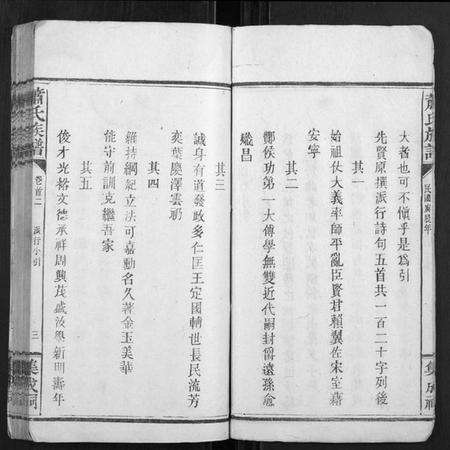 蕭氏族譜
民國庚辰年
集成祠
大者也可不慎乎是為引
先賢原撰派行詩句五首共一百二十字列後
其一
始祖仗大義率師平亂臣賢君賴翼佐宋室慕
安寧
其二
酇侯功第一太傅學無雙近代嗣封舊遠孫愈
熾昌
其三
誠身有道發政多仁匡王定國輔世長民流芳
奕葉慶澤雲礽
其四
維持綱紀立法可嘉勳名久著金玉美華
能守前訓克繼吾家
其五
俊才光裕文德承祥周興茂盛汝學新明壽年
蕭氏族譜
卷首二
派行小引
三
集成祠